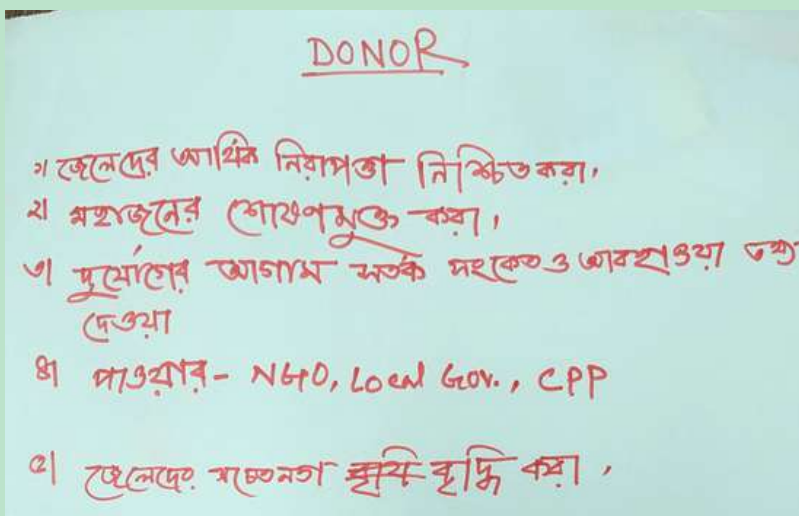 DONOR
১। জেলেদের আর্থিক নিরাপত্তা নিশ্চিত করা,
২। মহাজনের শোষণমুক্ত করা,
৩। দুর্যোগের আগাম সতর্ক সংকেত ও আবহাওয়া তথ্য
দেওয়া
৪। পাওয়ার - NGO, Local Gov., CPP
৫। জেলেদের সচেতনতা বৃদ্ধি করা,